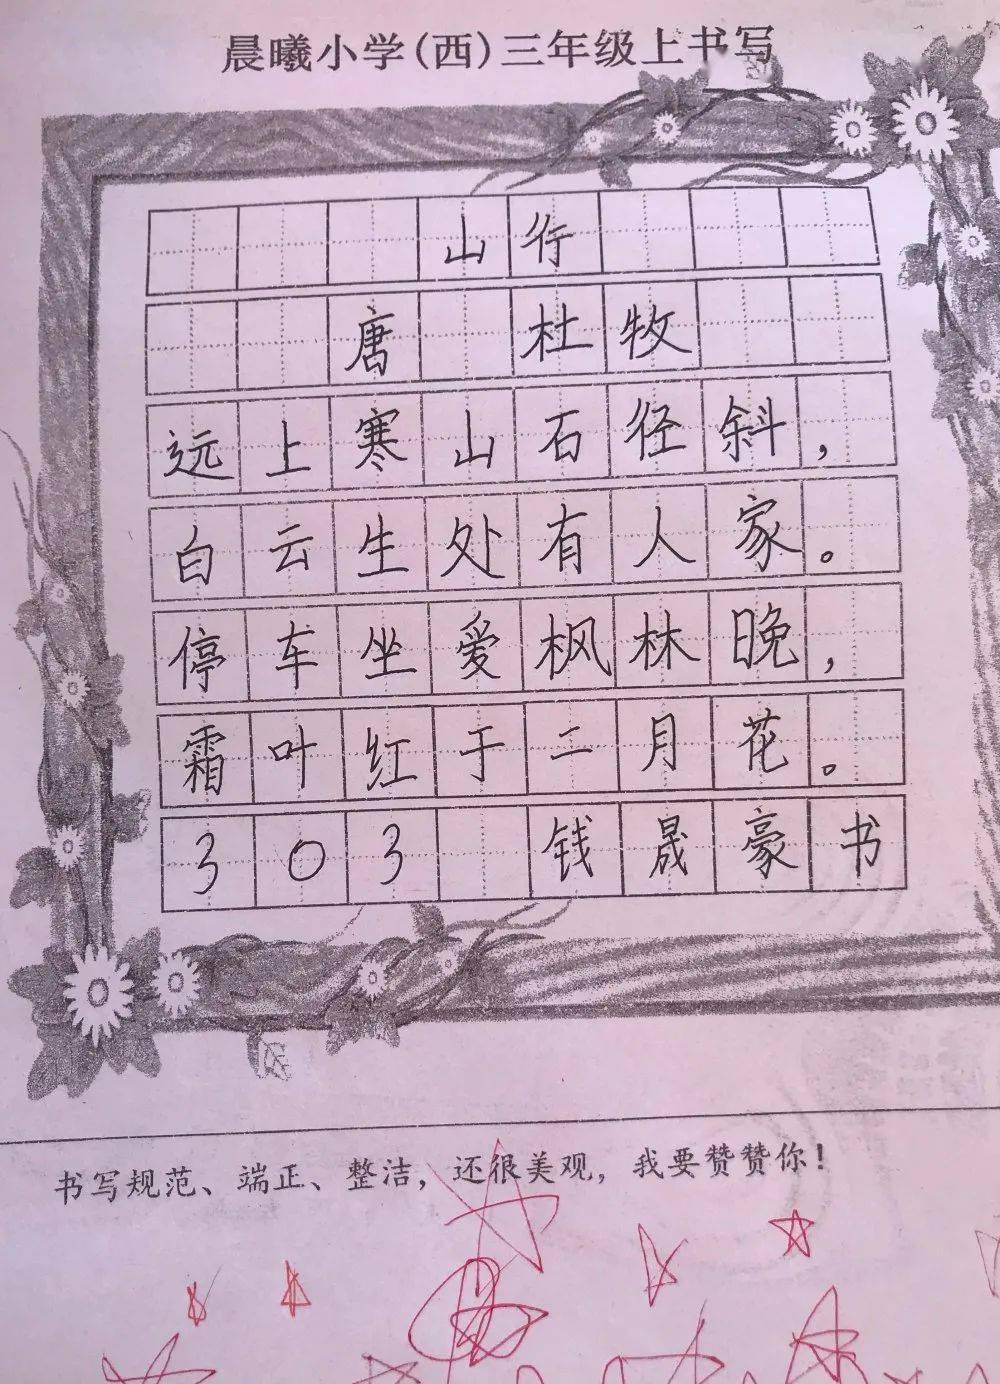 晨曦小学(西)三年级上书写
山行
唐 杜牧
远上寒山石径斜，
白云生处有人家。
停车坐爱枫林晚，
霜叶红于二月花。
303 钱晟豪书
书写规范、端正、整洁，还很美观，我要赞赞你！